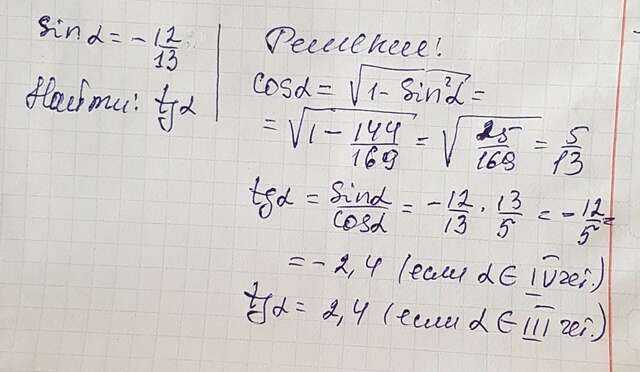 sin α = - 12/13
Найти: tg α
Решение!
cos α = √(1 - sin²α) =
= √(1 - 144/169) = √(25/169) = 5/13
tg α = sin α/cos α = - 12/13 · 13/5 = - 12/5 =
= - 2,4 (если α ∈ IV чет.)
tg α = 2,4 (если α ∈ III чет.)